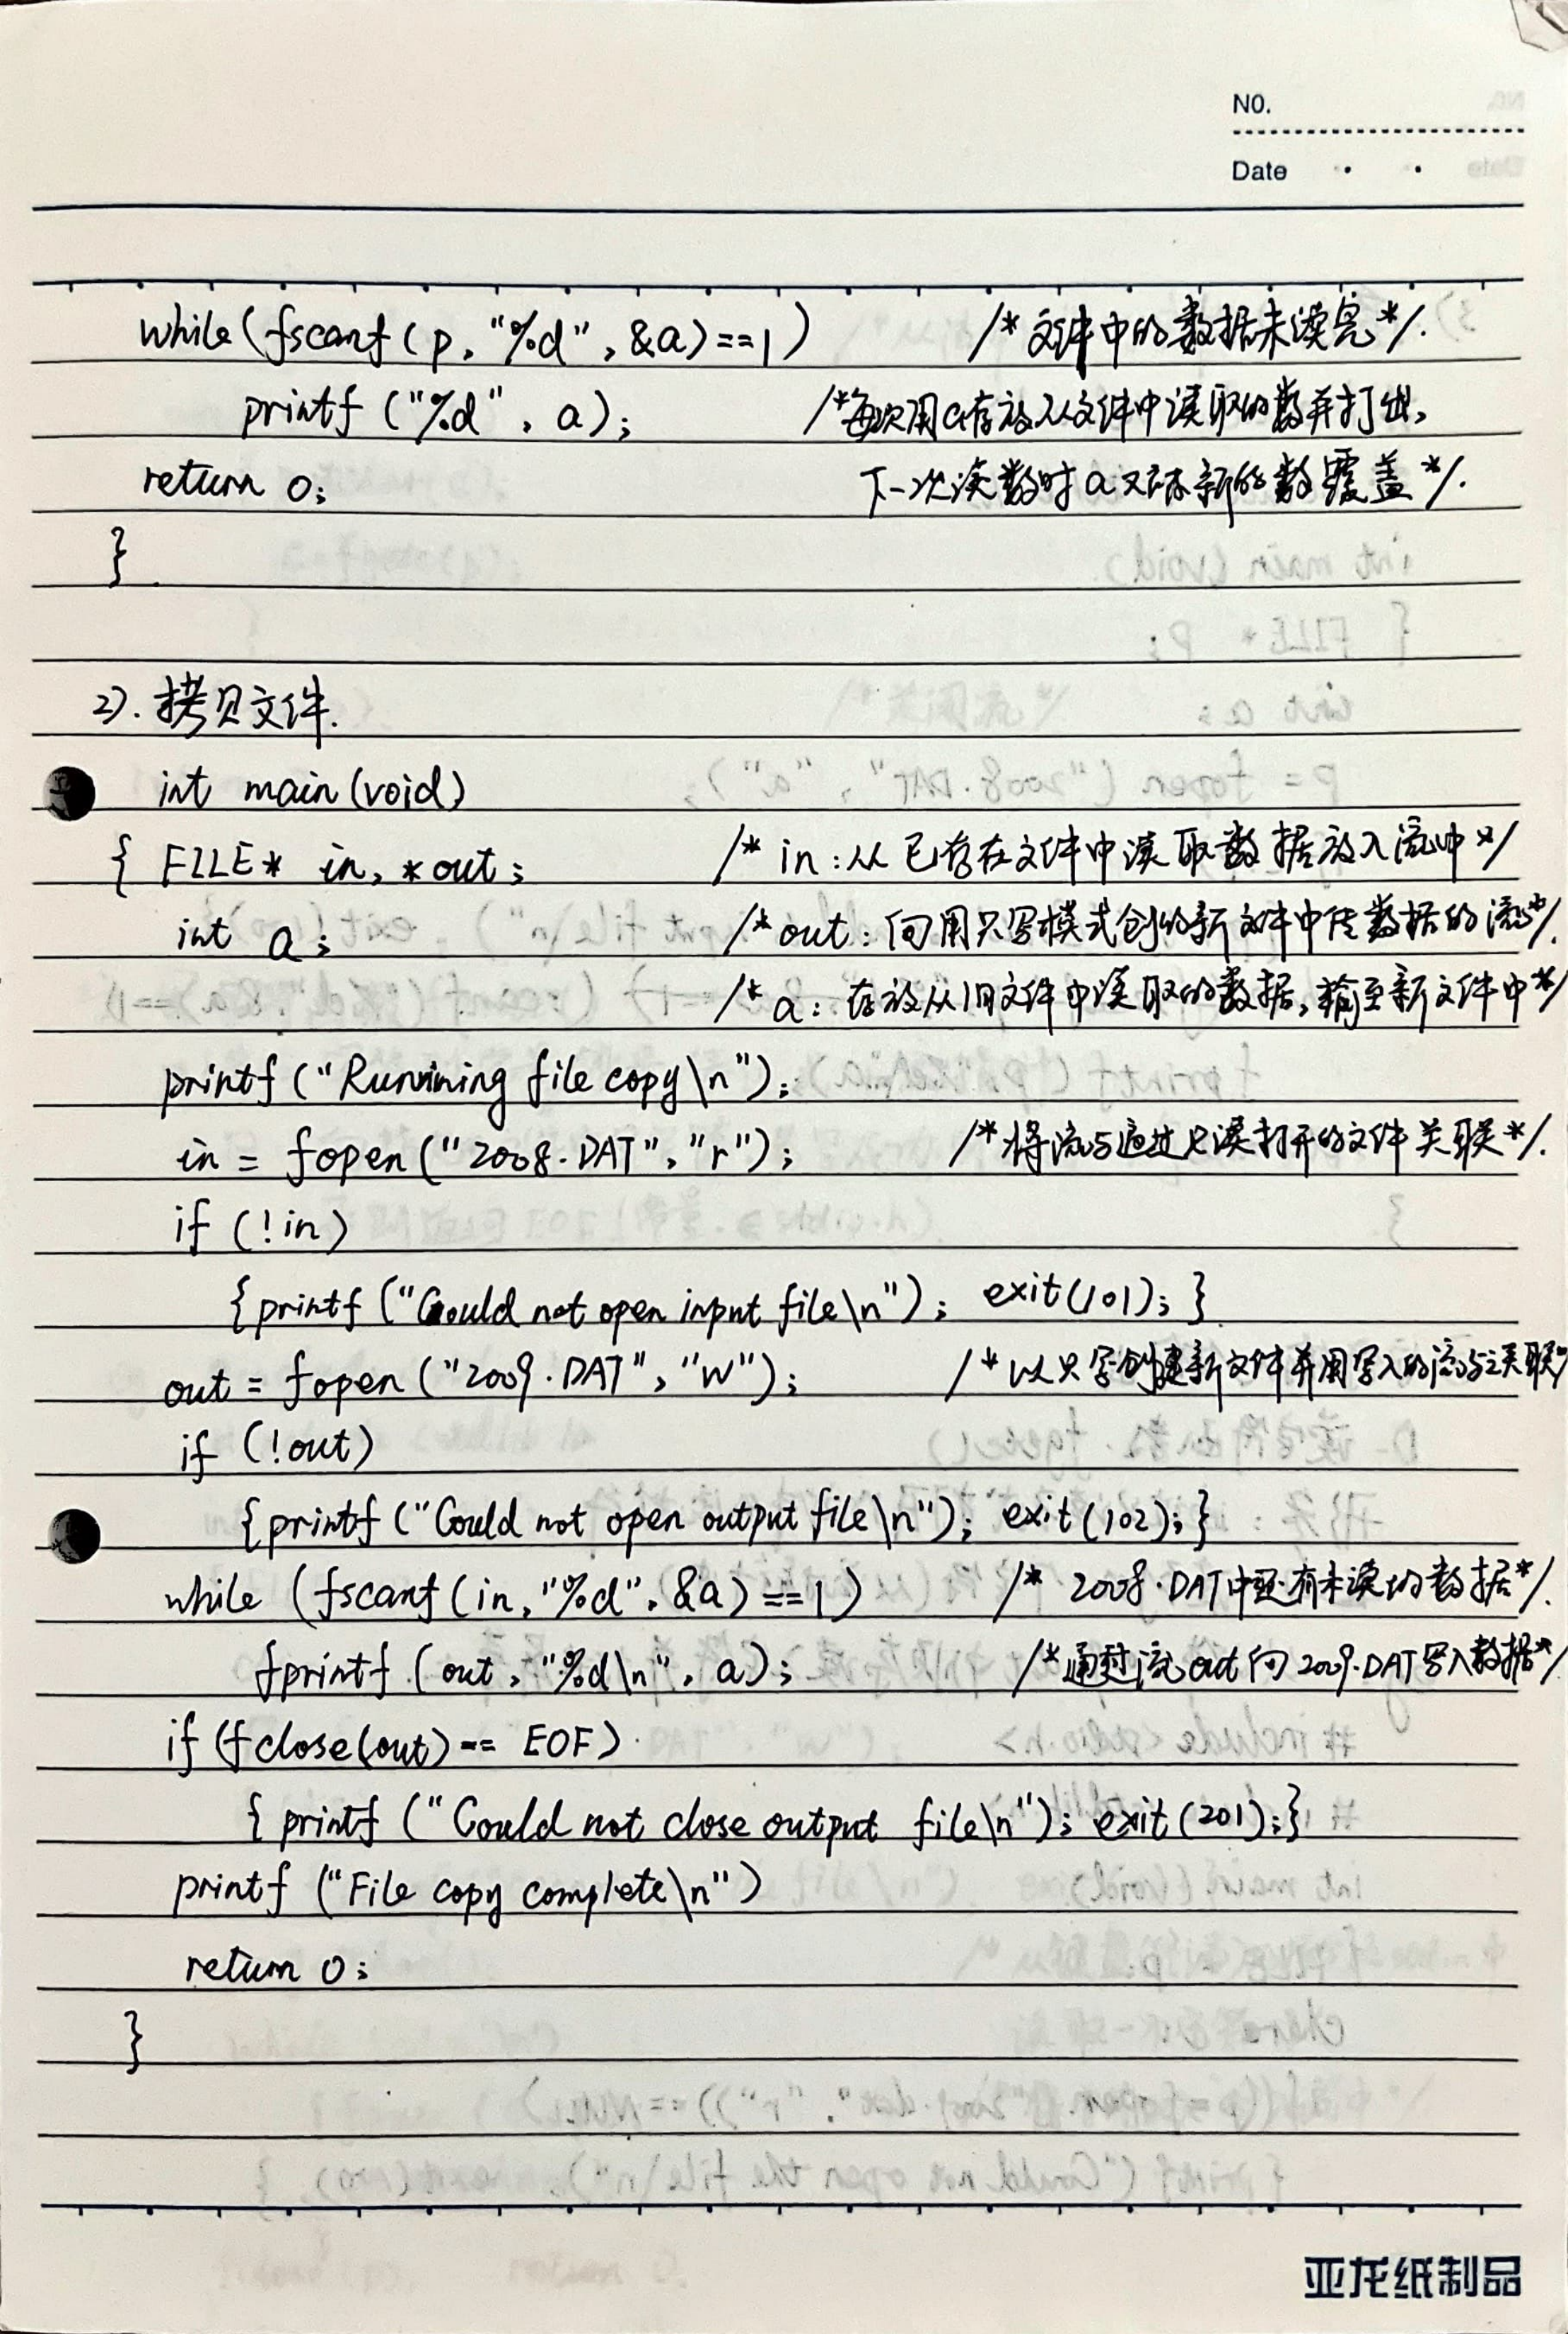 NO.
Date
while(fscanf(p,"%d",&a)==1) /*文件中的数据未读完*/.
printf("%d",a); /*每次用a存放从文件中读取的数并打出,
return 0; 下一次读数时a又被新的数覆盖*/.
}
2).拷贝文件.
int main(void)
{ FILE* in,*out; /* in:从已存在文件中读取数据放入流中*/
int a; /*out:向用只写模式创的新文件中传数据的流*/.
/*a:存放从旧文件中读取的数据,输至新文件中*/
printf("Running file copy\n");
in = fopen("2008.DAT","r"); /*将流与通过只读打开的文件关联*/.
if (!in)
{printf("Could not open input file\n"); exit(101);}
out = fopen("2009.DAT","w"); /*以只写创建新文件并用写入的流与之关联*/
if (!out)
{printf("Could not open output file\n"); exit(102);}
while (fscanf(in,"%d",&a)==1) /* 2008.DAT中还有未读的数据*/.
fprintf(out,"%d\n",a); /*通过流out向2009.DAT写入数据*/
if (fclose(out)== EOF)
{ printf("Could not close output file\n"); exit(201);}
printf("File copy complete\n")
return 0;
}
亚龙纸制品